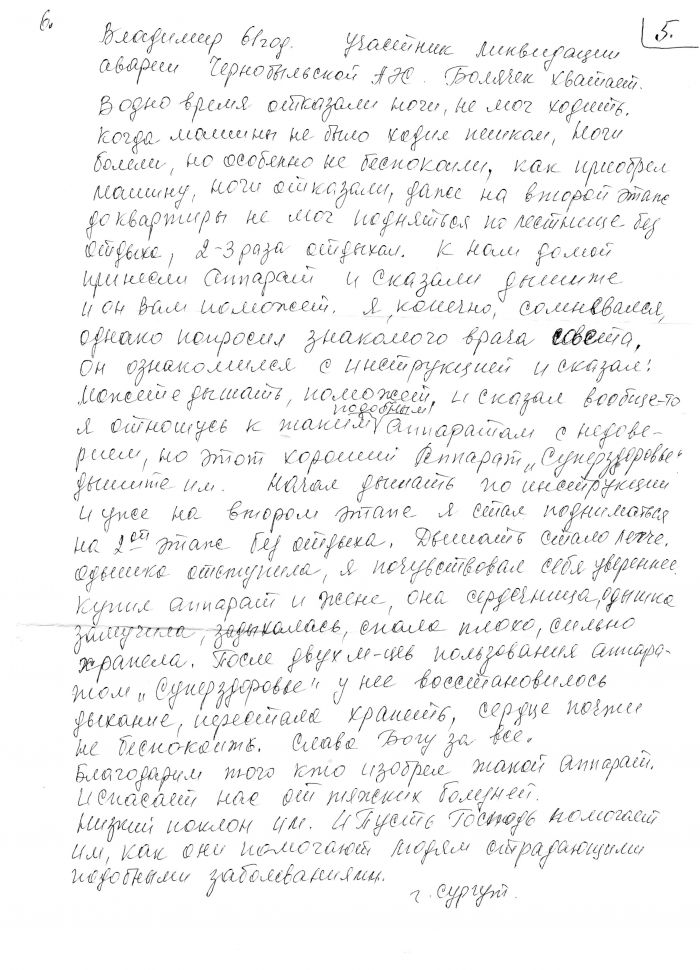 6.
5.
Владимир 61 год. участник ликвидации
аварии Чернобыльской АЭС. Болячек хватает.
В одно время отказали ноги, не мог ходить.
Когда машины не было ходил пешком, Ноги
болели, но особенно не беспокоили, как приобрел
машину, ноги отказали, даже на второй этаж
до квартиры не мог подняться по лестнице без
отдыха, 2-3 раза отдыхал. К нам домой
принесли Аппарат и сказали дышите
и он Вам поможет. Я, конечно, сомневался,
однако попросил знакомого врача совета,
он ознакомился с инструкцией и сказал:
можете дышать, поможет, и сказал вообще-то
я отношусь к таким подобным аппаратам с недове-
рием, но этот хороший Аппарат „Суперздоровье"
дышите им. Начал дышать по инструкции
и уже на втором этапе я стал подниматься
на 2ой этаже без отдыха. Дышать стало легче.
Одышка отступила, я почувствовал себя увереннее.
Купил аппарат и жене, она сердечница, одышка
замучила, задыхалась, спала плохо, сильно
храпела. После двух м-цев пользования аппара-
том „Суперздоровье" у нее восстановилось
дыхание, перестала храпеть, сердце почти
не беспокоить. Слава Богу за все.
Благодарим того кто изобрел такой аппарат.
И спасает нас от тяжских болезней.
Низкий поклон им. И Пусть Господь помогает
им, как они помогают людям страдающими
подобными заболеваниями.
г. Сургут.